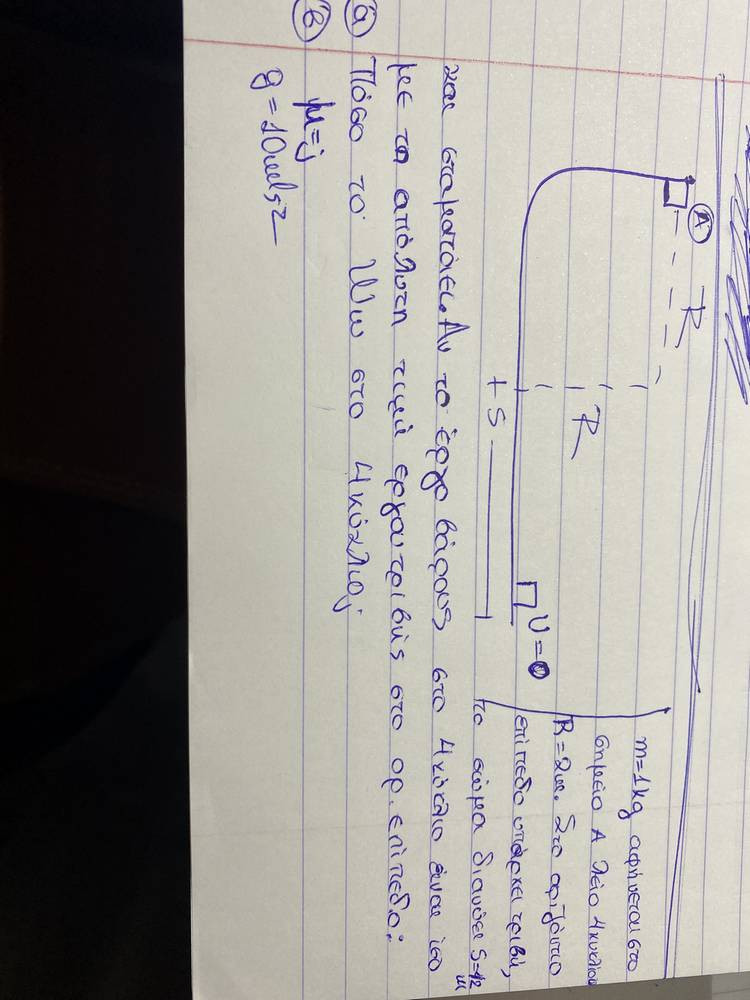 m=1kg αφήνεται στο
σημείο Α λείο 4κυκλίου
R=2m. Στο οριζόντιο
επίπεδο υπάρχει τριβή,
το σώμα διανύει S=12
m
Α
R
R
υ=0
+ S
και σταματάει. Αν το έργο βάρους στο 4κύκλιο είναι ίσο
με τη απόλυτη τιμή έργου τριβής στο ορ. επίπεδο:
α Πόσο το Ww στο 4κύκλιο;
β μ=;
g=10m/s2